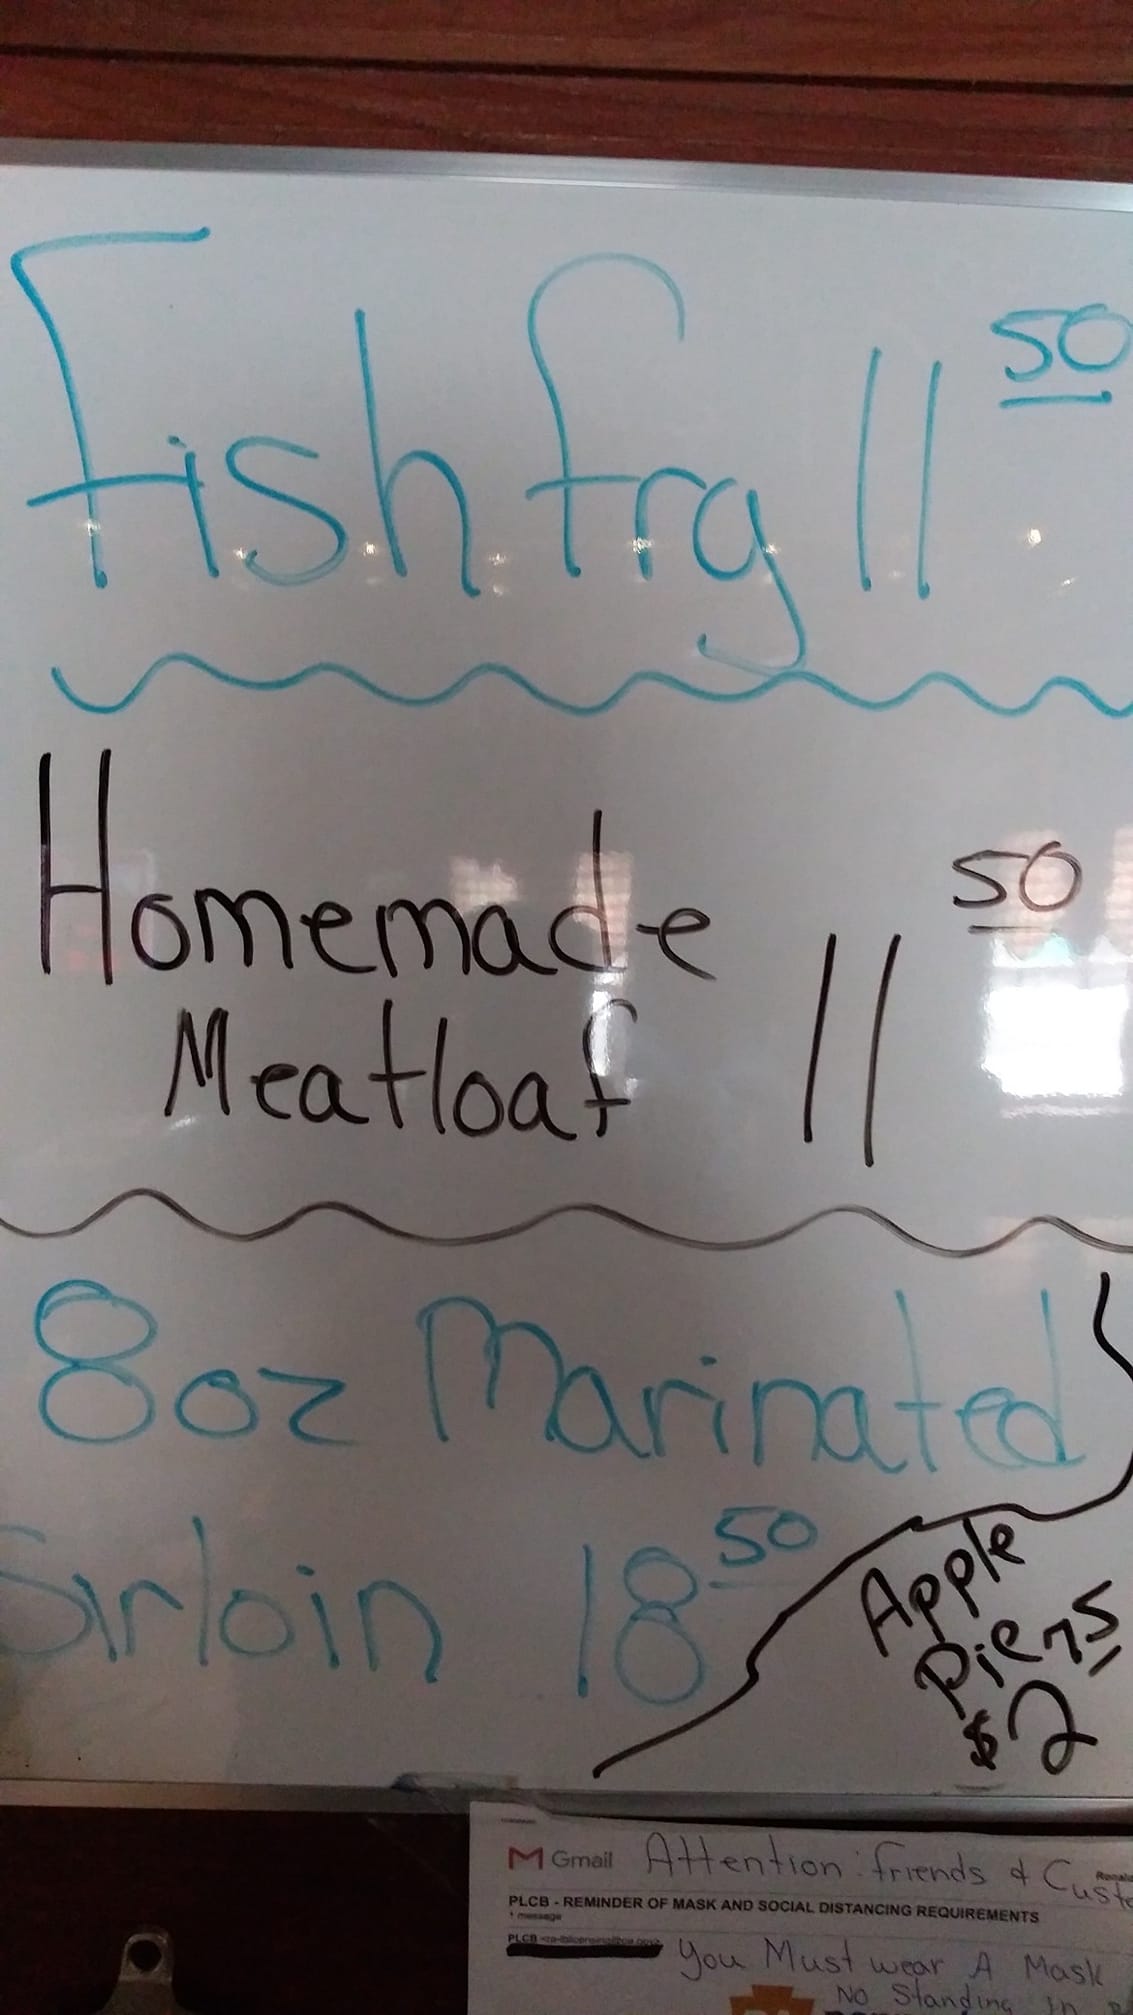 Fish fry 11 50
Homemade
Meatloaf 11 50
8oz Marinated
Sirloin 18 50
Apple
Pie 75
$2
Gmail
Attention: friends &
PLCB - REMINDER OF MASK AND SOCIAL DISTANCING REQUIREMENTS
1 message
PLCB
You Must wear A Mask
No Standing